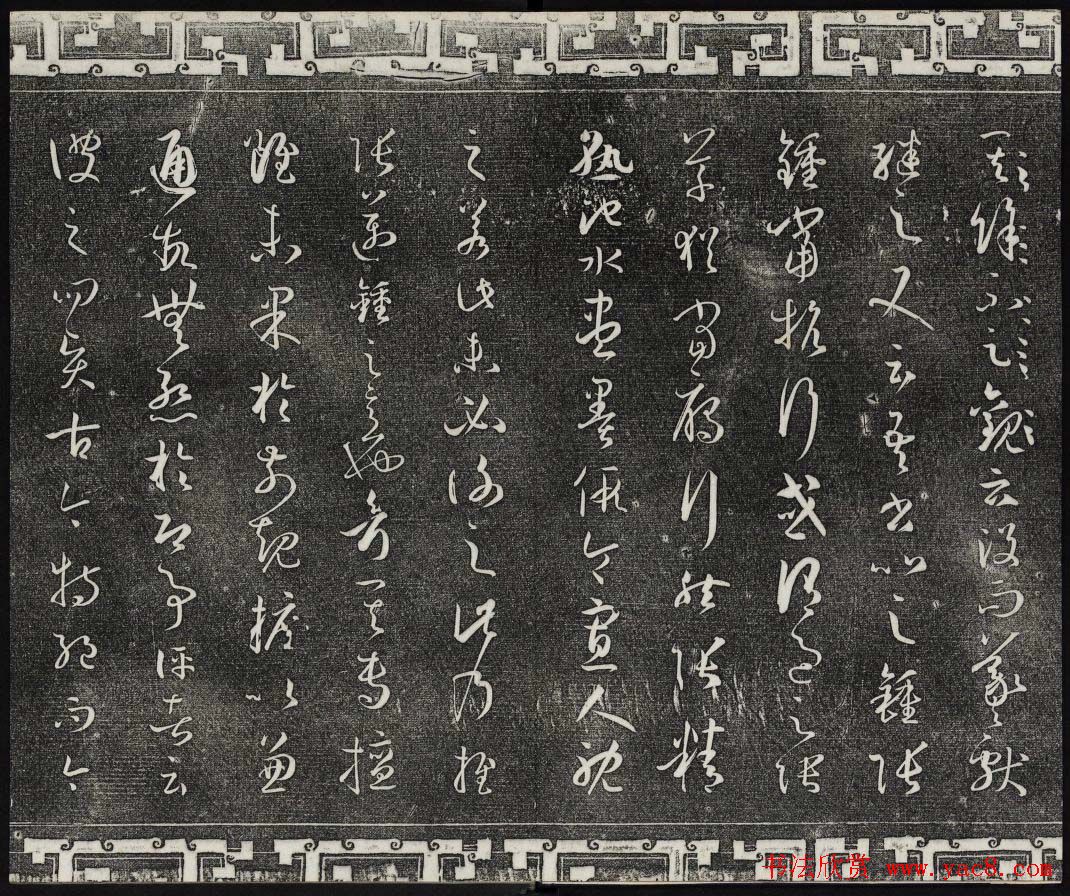 其餘不足觀云沒而羲獻
繼之又云吾書比之鍾張
鍾當抗行或謂過之張
草猶當鴈行然張精
熟池水盡墨假令寡人耽
之若此未必謝之此乃推
張邁鍾之意也考其專擅
雖未果於前規摭以兼
通故無慚於即事評者云
彼之四賢古今特絕而今
书法欣赏 www.yac8.com